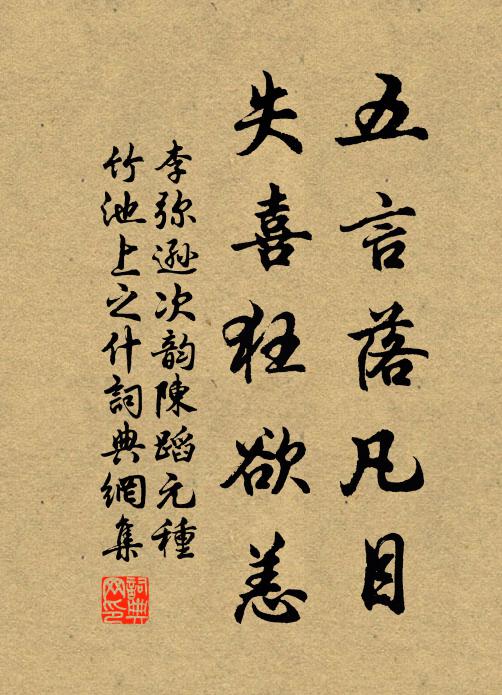 五言落凡目
失喜狂欲恙
李弥遜次韵陳蹈元種
竹池上之什詞典網集
詞典网印